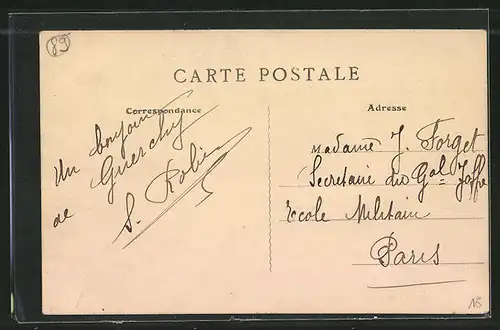 89
CARTE POSTALE
Correspondance
Adresse
Un bonjour
de Guerchy
S. Robin
Madame J. Forget
Secretaire du Gal Joffre
Ecole Militaire
Paris
15